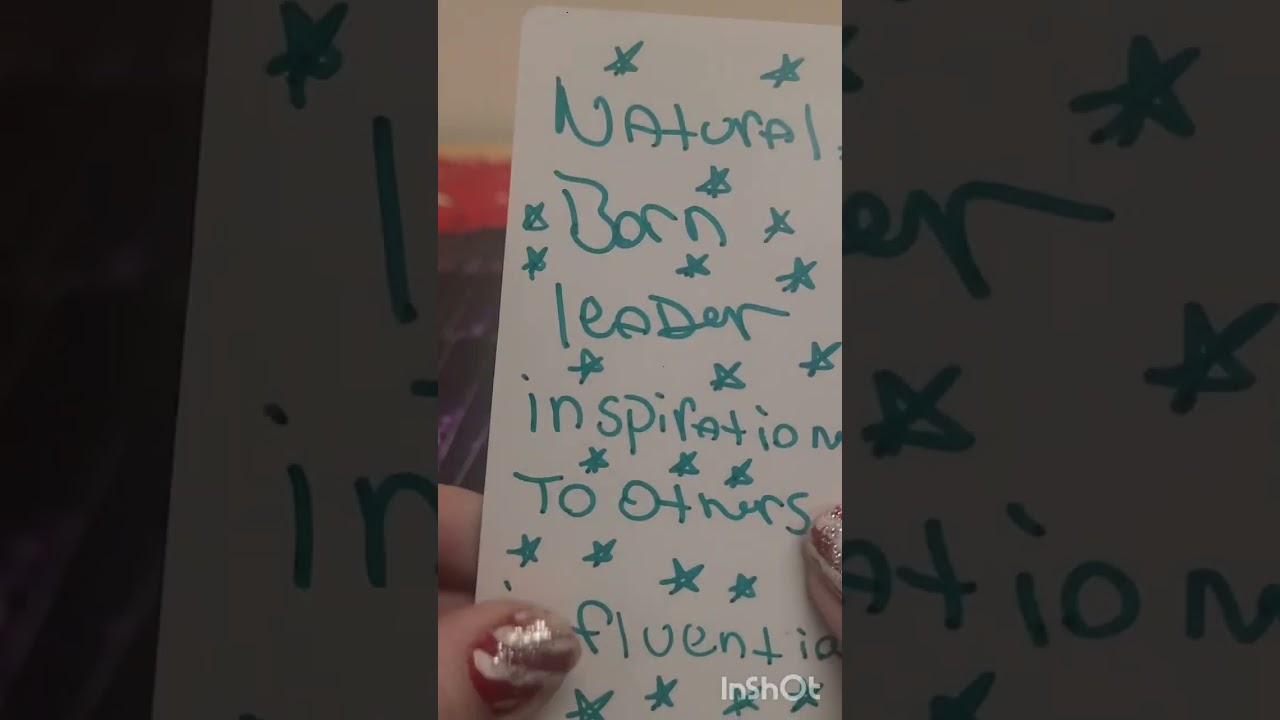 Natural
Born
leader
inspiration
To Others
influential
InShOt